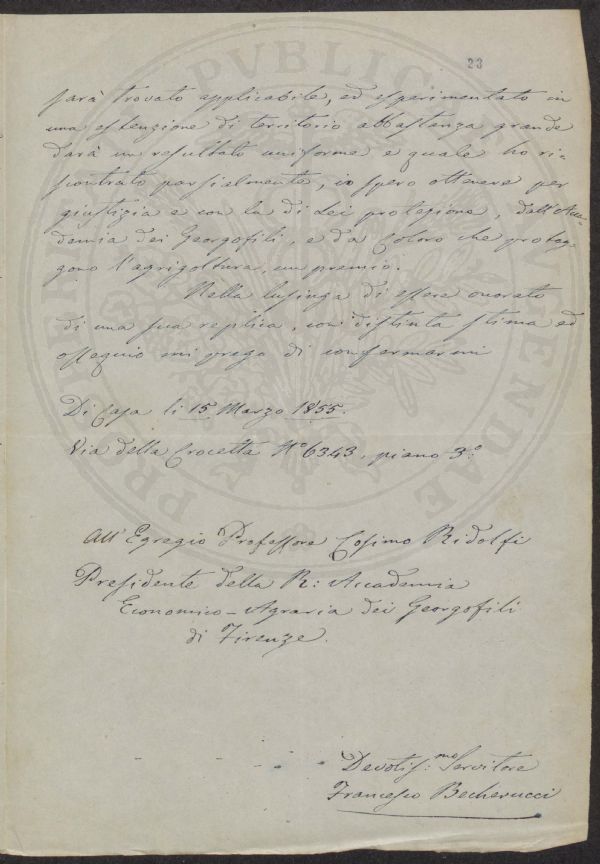 23
sarà trovato applicabile, ed esperimentato in
una estenzione di territorio abbastanza grande
darà un resultato uniforme e quale ho ri=
scontrato parzialmente, io spero ottenere per
giustizia e con la di Lei protezione, dall'Acca=
demia dei Georgofili, e da Coloro che proteg=
gono l'agrigoltura, un premio.
Nella lusinga di essere onorato
di una sua replica, con distinta stima ed
ossequio mi prego di confermarmi
Di Casa li 15 Marzo 1855.
Via della Crocetta N° 6343, piano 3°:
All' Egregio Professore Cosimo Ridolfi
Presidente della R: Accademia
Economico-Agraria dei Georgofili
di Firenze.
Devotis:mo Servitore
Francesco Becherucci
PROSPERITATI PVBLICAE AVGENDAE